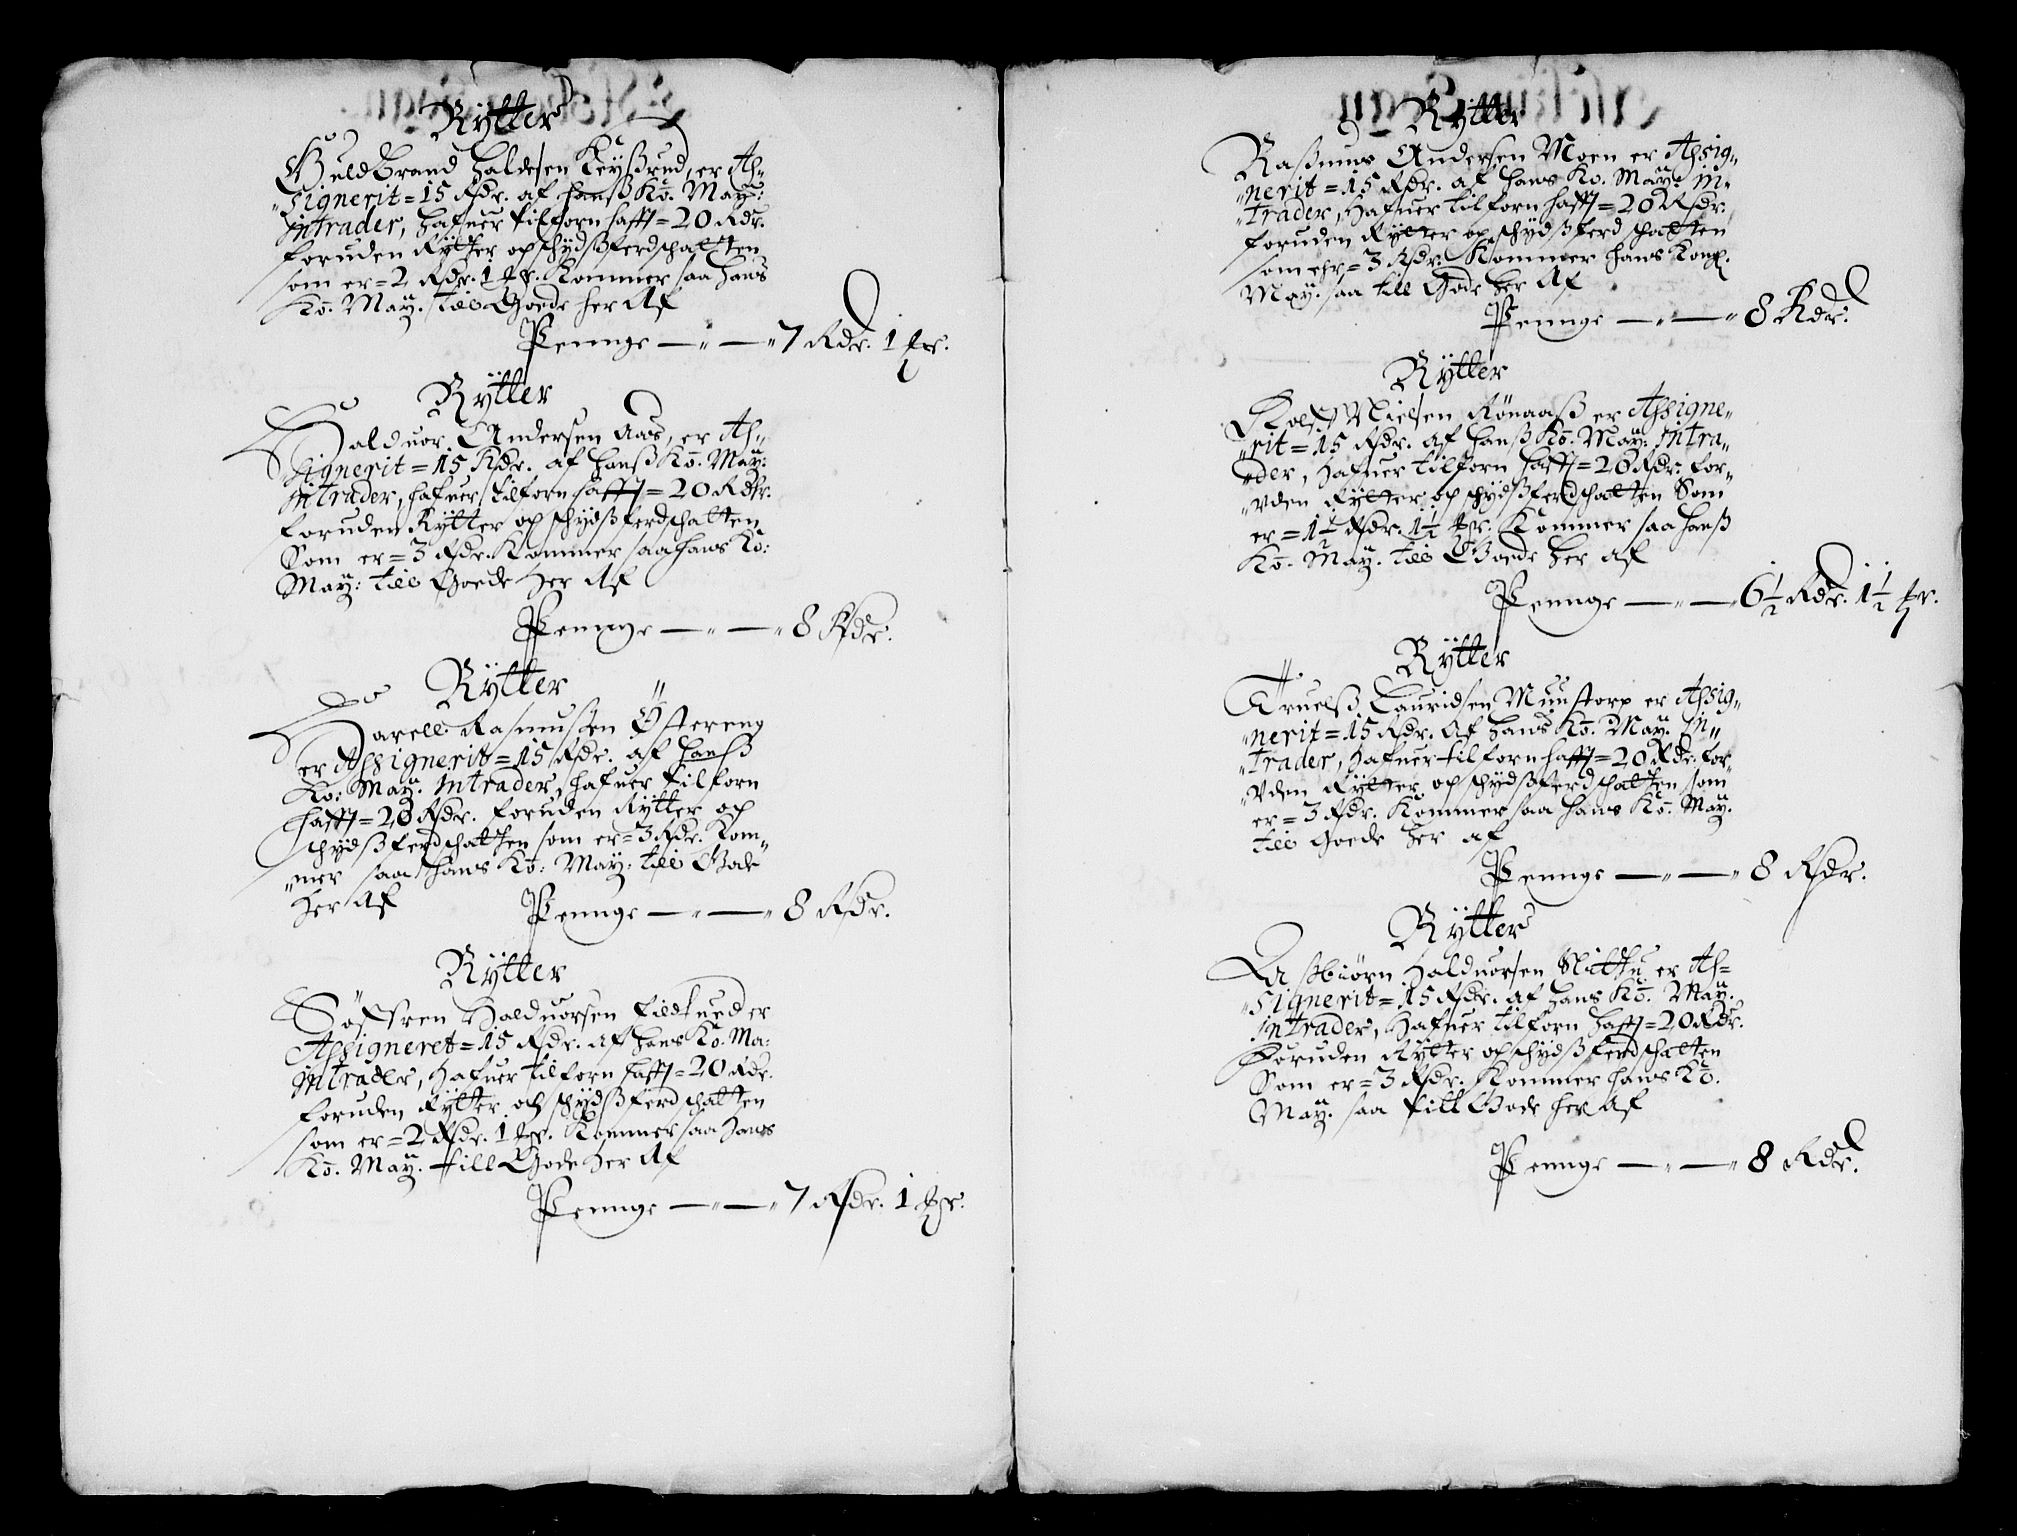 Rÿtter
Guldbrand Haldesen Keÿßrud, er As-
signerit = 15 Rdr. af hanß Ko. Maÿ:
Intrader, Hafuer tilforn hafft = 20 Rdr.
foruden Rÿtter och schÿdßferdschatten
som er = 2 Rdr. 1 ſpr. Kommer saa hans
Ko. Maÿ. till Goede her Af
Penge — „ — „ 7 Rdr. 1
Rÿtter
Halduor Andersen Aas, er As-
signerit = 15 Rdr. af hanß Ko. Maÿ:
Intrader, hafuer tilforn hafft = 20 Rdr.
foruden Rÿtter och schÿdßferdschatten
Som er = 3 Rdr. Kommer saa hans Ko:
Maÿ: till Goede her Af
Penge — „ — „ 8 Rdr.
Rÿtter
Harell Rasmussen Östereng
er Assignerit = 15 Rdr. af hanß
Ko: Maÿ. Intrader, hafuer tilforn
hafft = 20 Rdr. foruden Rÿtter och
schÿdßferdschatten som er = 3 Rdr. Kom-
„mer saa hans Ko: Maÿ: till Gode
her Af
Penge — „ — „ 8 Rdr.
Rÿtter
Söffren Halduorsen er
Assigneret = 15 Rdr. af hans Ko. Ma:
Intrader, Hafuer tilforn hafft = 20 Rdr.
foruden Rÿtter och schÿdßferdschatten
som er = 2 Rdr. 1 Kommer saa hans
Ko. Maÿ. till Gode her Af
Penge — „ — „ 7 Rdr. 1
Rÿtter
Raßmus Andersen Moen er Assig-
„nerit = 15 Rdr. af hans Ko. Maÿ: In-
„trader, Hafuer tilforn hafft = 20 Rdr.
foruden Rÿtter och schÿdßferdschatten
som ehr = 3 Rdr. Kommer hans Kong.
Maÿ. saa till Gode her Af
Penge — „ — „ 8 Rdr.
Rÿtter
Rolff Nielsen Rönaaß er Assigne-
„rit = 15 Rdr. af hanß Ko. Maÿ: Intra-
„der, Hafuer tilforn hafft = 20 Rdr. for-
„uden Rÿtter och schÿdßferdschatten Som
er = 1½ Rdr. 1½ Kommer saa hanß
Ko. Maÿ. till Goede her af
Penge — „ — „ 6½ Rdr. 1½
Rÿtter
Truelß Lauridsen Munstorp er Assig-
„nerit = 15 Rdr. Af hans Ko. Maÿ. In-
„trader, Hafuer tilforn hafft = 20 Rdr. for-
„uden Rÿtter och schÿdßferdschatten som
er = 3 Rdr. Kommer saa hans Ko. Maÿ.
till Goede her af
Penge — „ — „ 8 Rdr.
Rÿtter
Aßbiörn Halduorsen er As-
„signerit = 15 Rdr. af hans Ko. Maÿ.
Intrader, Hafuer tilforn hafft = 20 Rdr.
Foruden Rÿtter och schÿdßferdschatten
Som er = 3 Rdr. Kommer hans Ko.
Maÿ. saa till Gode her Af
Penge — „ — „ 8 Rdr.